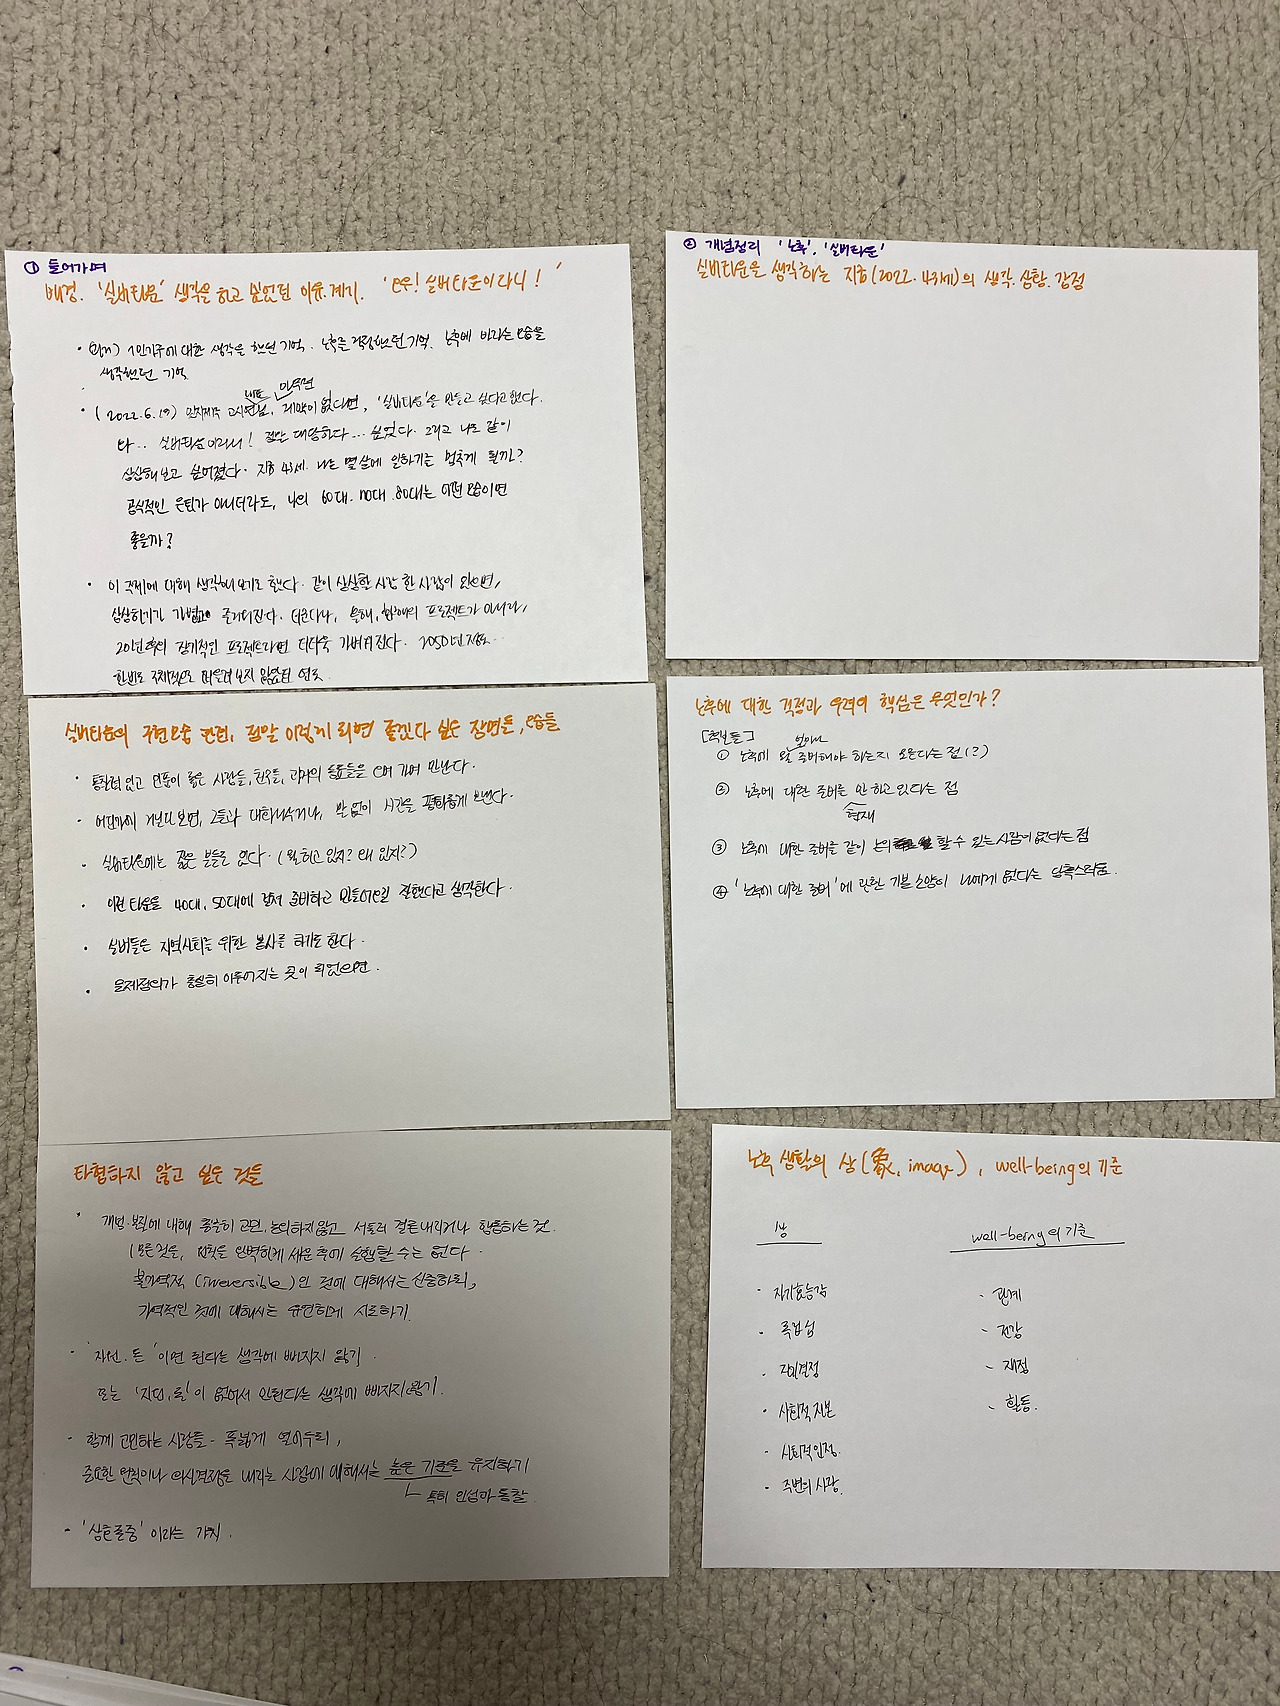 ① 들어가며
배경. '실버타운' 생각을 하고 싶었던 이유. 계기. '와우! 실버타운이라니!'
· (과거) 1인가구에 대한 생각을 했던 기억. 노후를 걱정했던 기억. 노후에 바라는 모습을
생각했던 기억
대표 만약먼
· (2022.6.19) 제약이 없다면, '실버타운'을 만들고 싶다고 했다.
와.. 실버타운이라니! 정말 대단하다... 싶었다. 그리고 나도 같이
상상해보고 싶어졌다. 지금 43세. 나는 몇살에 일하기를 멈추게 될까?
공식적인 은퇴가 아니더라도, 나의 60대. 70대. 80대는 어떤 모습이면
좋을까?
· 이 주제에 대해 생각해보기로 했다. 같이 상상할 사람 한 사람이 있으면,
상상하기가 가볍고 즐거워진다. 더군다나, 올해, 프로젝트가 아니라,
20년후의 장기적인 프로젝트라면 더더욱 가벼워진다. 2050년 정도..
한번도 구체적으로 떠올려 보지 않았던 연도.
② 개념정리 '노후', '실버타운'
실버타운을 생각하는 지금(2022. 43세)의 생각. 상황. 감정
실버타운의 구현모습 관련, 정말 이렇게 되면 좋겠다 싶은 장면들, 모습들
· 통찰력 있고 인품이 좋은 사람들, 친구들, 과거의 동료들을 오며 가며 만난다.
· 어딘가에 거닐다 보면, 그들과 대화나누거나, 말 없이 시간을 평화롭게 보낸다.
· 실버타운에는 젊은 분들도 있다. (뭘 하고 있지? 왜 있지?)
· 이런 타운을 40대, 50대에 걸쳐 준비하고 만들어오길 잘했다고 생각한다.
· 실버들은 지역사회를 위한 봉사를 하기도 한다.
· 문제정의가 충실히 이루어지는 곳이 되었으면.
노후에 대한 걱정과 우려의 핵심은 무엇인가?
[후보들]
얼마나
① 노후에 뭘 준비해야 하는지 모른다는 점(?)
② 노후에 대한 준비를 안 하고 있다는 점
현재
③ 노후에 대한 준비를 같이 논의 할 수 있는 사람이 없다는 점
④ '노후에 대한 준비'에 관한 기본 소양이 나에게 없다는 당혹스러움.
타협하지 않고 싶은 것들
· 개념. 본질에 대해 충분히 고민, 논의하지 않고 서둘러 결론내리거나 합동하는 것.
(모든 것을, 계획을 완벽하게 세운 후에 실행할 수는 없다.
불가역적 (irreversible)인 것에 대해서는 신중하되,
가역적인 것에 대해서는 유연하게 시도하기.
· '자원. 돈'이면 된다는 생각에 빠지지 않기.
또는 '자원, 돈'이 없어서 안된다는 생각에 빠지지 않기.
· 함께 고민하는 사람들 - 폭넓게 열어두되,
중요한 원칙이나 의사결정을 내리는 시점에 대해서는 높은 기준을 유지하기
ㄴ 특히 인성과 통찰
· '상호존중' 이라는 가치.
노후 생활의 상(象, image), well-being의 기준
상
well-being의 기준
· 자기효능감
· 독립성
· 자기결정
· 사회적 자본
· 사회적 인정.
· 주변의 사람.
- 관계
- 건강
- 재정
- 활동.